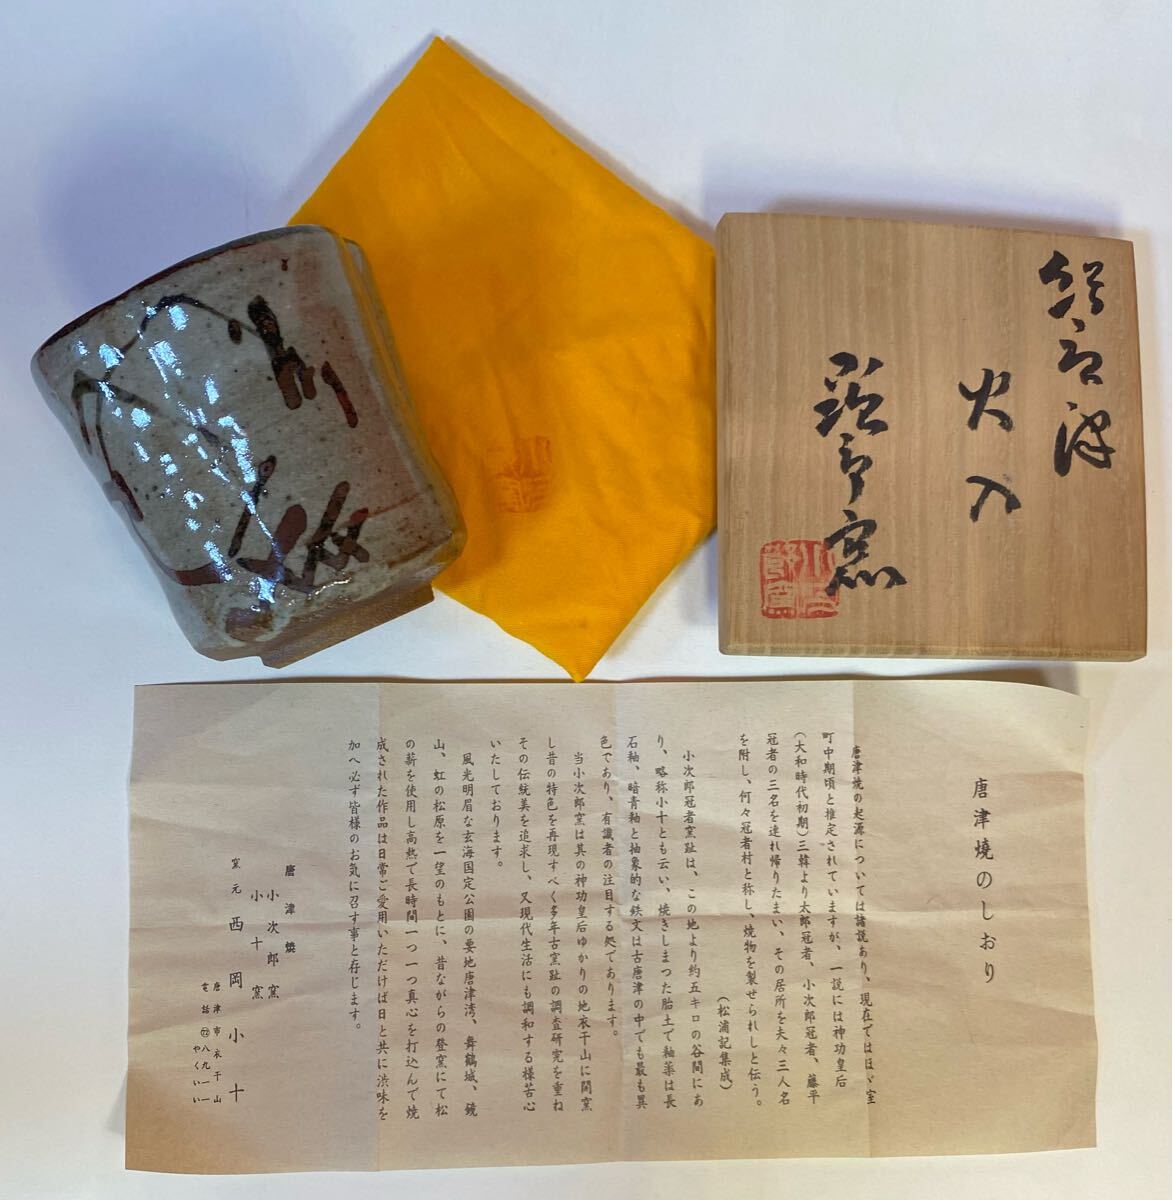 絵唐津
火入
唐津燒のしおり
唐津焼の起源については諸説あり、現在ではほゞ室
町中期頃と推定されていますが、一説には神功皇后
(大和時代初期)三韓より太郎冠者、小次郎冠者、藤平
冠者の三名を連れ帰りたまい、その居所を夫々三人名
を附し、何々冠者村と称し、焼物を製せられしと伝う。
(松浦記集成)
小次郎冠者窯趾は、この地より約五キロの谷間にあ
り、略称小十とも云い、焼きしまつた胎土で釉薬は長
石釉、暗青釉と抽象的な鉄文は古唐津の中でも最も異
色であり、有識者の注目する処であります。
当小次郎窯は其の神功皇后ゆかりの地衣干山に開窯
し昔の特色を再現すべく多年古窯趾の調査研究を重ね
その伝統美を追求し、又現代生活にも調和する様苦心
いたしております。
風光明眉な玄海国定公園の要地唐津湾、舞鶴城、鏡
山、虹の松原を一望のもとに、昔ながらの登窯にて松
の薪を使用し高熱で長時間一つ一つ真心を打込んで焼
成された作品は日常ご愛用いただけば日と共に渋味を
加へ必ず皆様のお気に召す事と存じます。
唐津焼
小次郎窯
小十窯
窯元 西岡小十
唐津市衣干山
電話㋆八九一一
やくいい